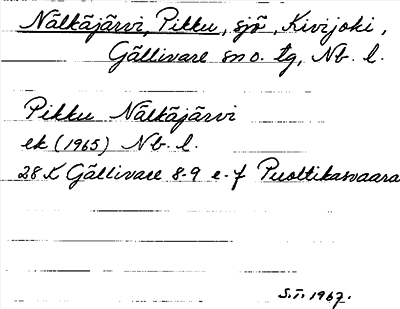 Nälkäjärvi, Pikku, sjö, Kivijoki,
Gällivare sn o. tg, Nb. l.
Pikku Nälkäjärvi
ek (1965) Nb. l.
28 K Gällivare 8-9 e-f Puoltikasvaara
S.I. 1967.